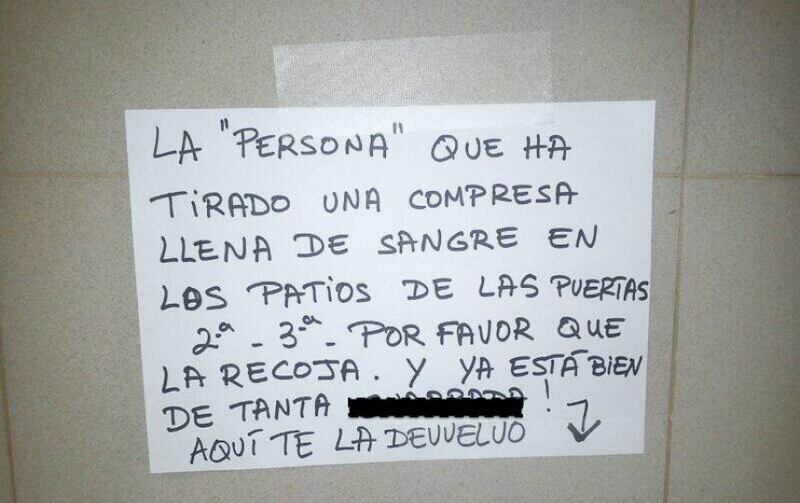 LA "PERSONA" QUE HA
TIRADO UNA COMPRESA
LLENA DE SANGRE EN
LOS PATIOS DE LAS PUERTAS
2.ª - 3.ª - POR FAVOR QUE
LA RECOJA. Y YA ESTÁ BIEN
DE TANTA !
AQUÍ TE LA DEVUELVO